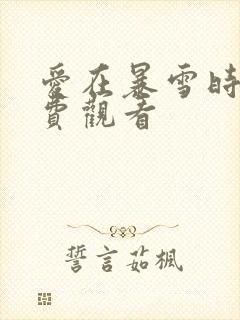 愛在暴雪時
費觀看
誓言茹楓